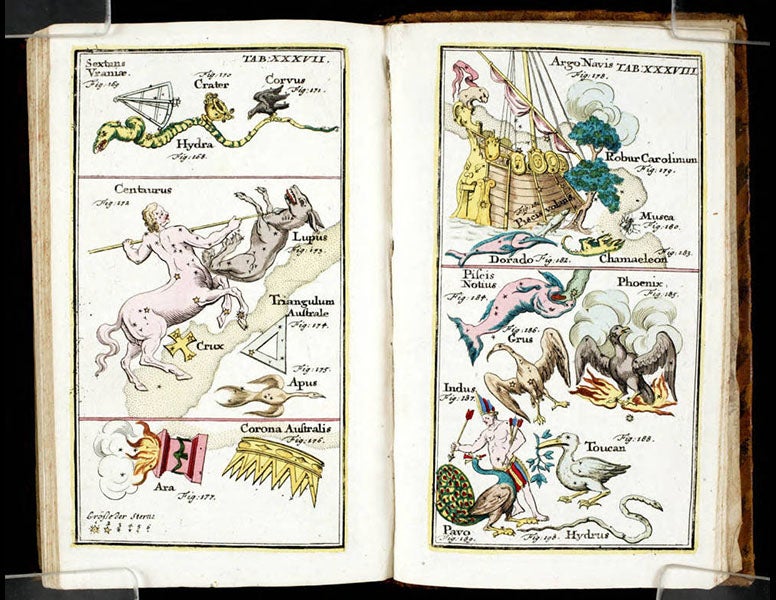 TAB:XXXVII.
Sextans
Vraniæ.
Fig: 169.
Fig: 170
Crater
Corvus
Fig: 171.
Hydra
Fig: 168.
Centaurus
Fig: 172
Lupus
Fig: 173
Triangulum
Australe
Fig: 174.
Crux
Fig: 175.
Apus
Corona Australis
Fig: 176.
Ara
Fig: 177.
Größe der Sterne
1 2 3 4 5 6
Argo Navis
TAB:XXXVIII
Fig: 178.
Robur Carolinum
Fig: 179.
Piscis volans
Musca
Fig: 180.
Dorado Fig: 182.
Chamaeleon
Fig: 183.
Piscis
Notius
Fig: 184.
Phoenix.
Fig: 185.
Fig: 186.
Grus
Indus.
Fig: 187.
Fig: 188.
Toucan
Pavo
Fig: 189.
Hydrus